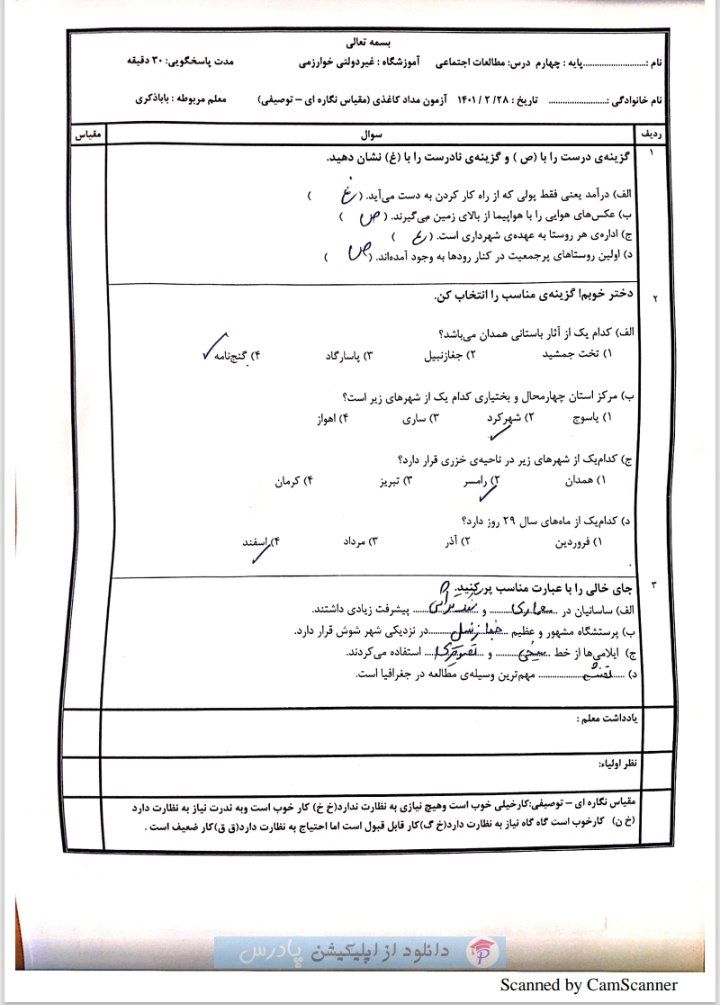 بسمه تعالی
نام :..........................پایه : چهارم درس: مطالعات اجتماعی آموزشگاه : غیردولتی خوارزمی مدت پاسخگویی: ۳۰ دقیقه
نام خانوادگی :........................ تاریخ : ۲۸/ ۲ / ۱۴۰۱ آزمون مداد کاغذی (مقیاس نگاره ای – توصیفی) معلم مربوطه : باباذکری
ردیف سوال مقیاس
۱ گزینه‌ی درست را با (ص ) و گزینه‌ی نادرست را با (غ) نشان دهید.
الف) درآمد یعنی فقط پولی که از راه کار کردن به دست می‌آید. ( غ )
ب) عکس‌های هوایی را با هواپیما از بالای زمین می‌گیرند. ( ص )
ج) اداره‌ی هر روستا به عهده‌ی شهرداری است. ( غ )
د) اولین روستاهای پرجمعیت در کنار رودها به وجود آمده‌اند. ( ص )
۲ دختر خوبم! گزینه‌ی مناسب را انتخاب کن.
الف) کدام یک از آثار باستانی همدان می‌باشد؟
۱) تخت جمشید ۲) جغازنبیل ۳) پاسارگاد ۴) گنج‌نامه ✓
ب) مرکز استان چهارمحال و بختیاری کدام یک از شهرهای زیر است؟
۱) یاسوج ۲) شهرکرد ✓ ۳) ساری ۴) اهواز
ج) کدام‌یک از شهرهای زیر در ناحیه‌ی خزری قرار دارد؟
۱) همدان ۲) رامسر ✓ ۳) تبریز ۴) کرمان
د) کدام‌یک از ماه‌های سال ۲۹ روز دارد؟
۱) فروردین ۲) آذر ۳) مرداد ۴) اسفند ✓
۳ جای خالی را با عبارت مناسب پر کنید.
الف) ساسانیان در ..معماری.. و .......... پیشرفت زیادی داشتند.
ب) پرستشگاه مشهور و عظیم ..........در نزدیکی شهر شوش قرار دارد.
ج) ایلامی‌ها از خط ..میخی.. و ..تصویری.. استفاده می‌کردند.
د) ..نقشه.. مهم‌ترین وسیله‌ی مطالعه در جغرافیا است.
یادداشت معلم :
نظر اولیاء:
مقیاس نگاره ای – توصیفی:کارخیلی خوب است وهیچ نیازی به نظارت ندارد(خ خ) کار خوب است وبه ندرت نیاز به نظارت دارد
(خ ن) کارخوب است گاه گاه نیاز به نظارت دارد(خ گ)کار قابل قبول است اما احتیاج به نظارت دارد(ق ق)کار ضعیف است .
دانلود از اپلیکیشن پادرس
Scanned by CamScanner